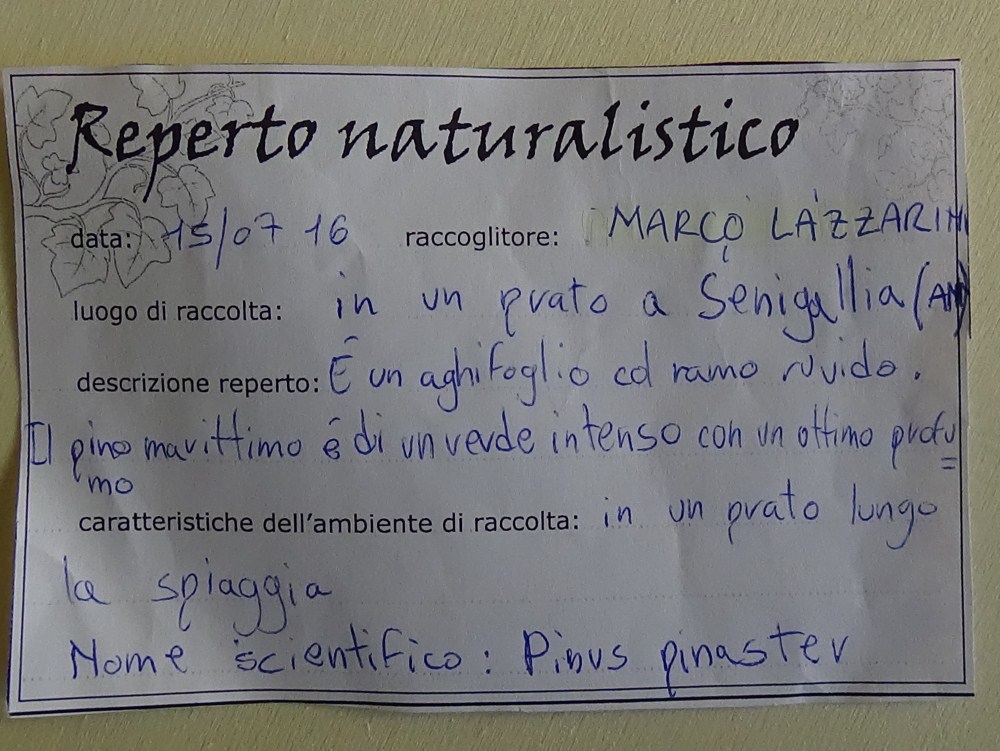 Reperto naturalistico
data: 15/07 16 raccoglitore: MARCO LAZZARINI
luogo di raccolta: in un prato a Senigallia (AN)
descrizione reperto: È un aghifoglio cd ramo ruvido.
Il pino marittimo è di un verde intenso con un ottimo profu=
mo
caratteristiche dell'ambiente di raccolta: in un prato lungo
la spiaggia
Nome scientifico: Pinus pinaster